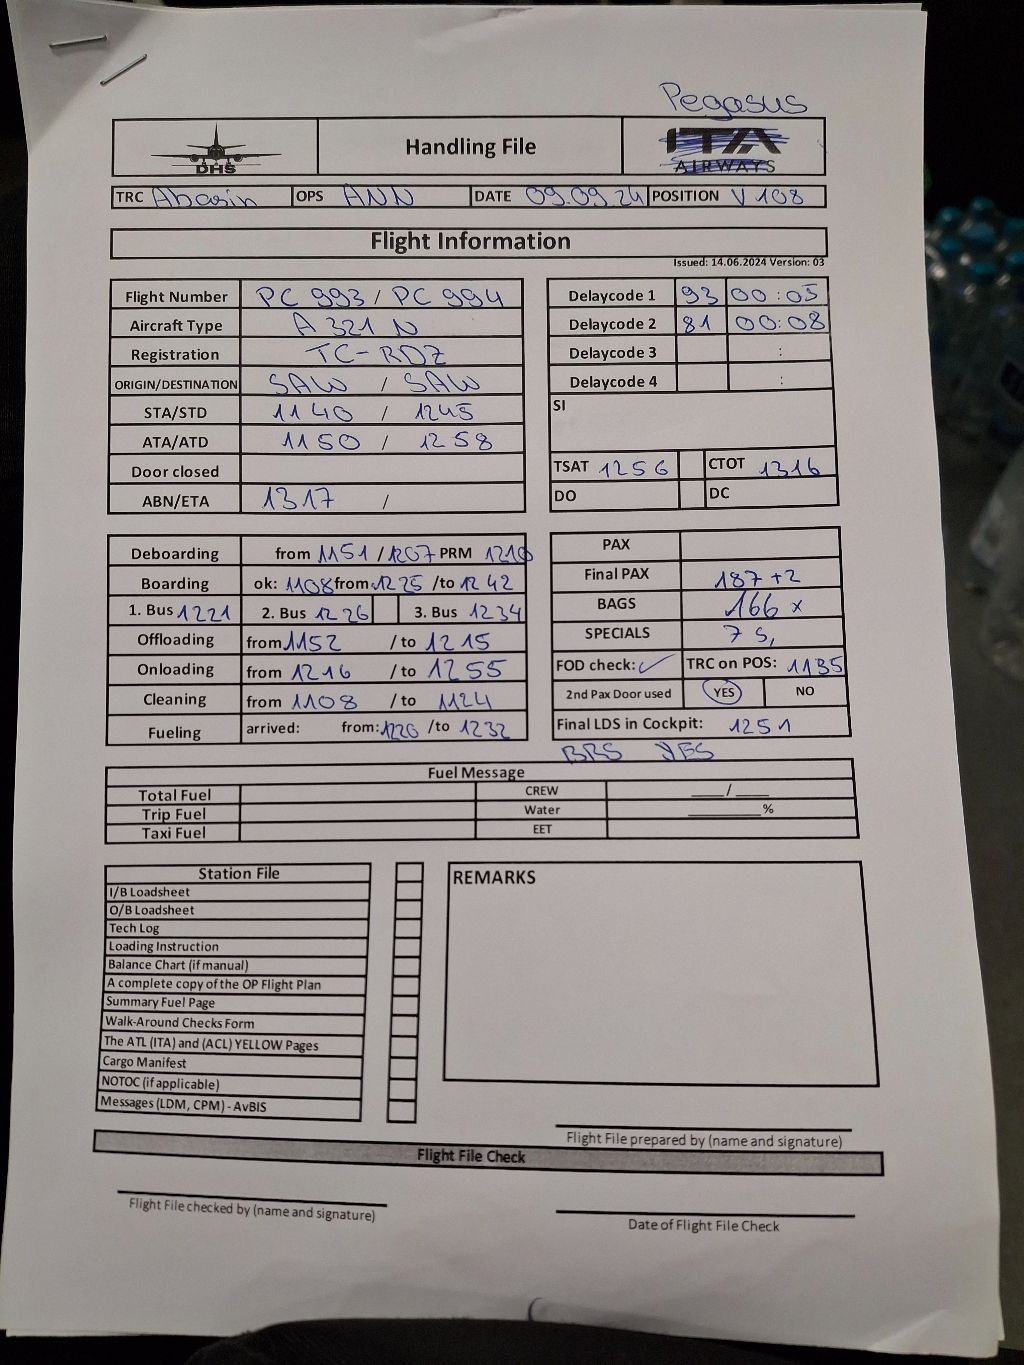 Pegasus
DHS
Handling File
ITA
AIRWAYS
TRC Abasin OPS ANN DATE 09.09.24 POSITION V 108
Flight Information
Issued: 14.06.2024 Version: 03
Flight Number PC 993 / PC 994
Aircraft Type A 321 N
Registration TC-RDZ
ORIGIN/DESTINATION SAW / SAW
STA/STD 1140 / 1245
ATA/ATD 1150 / 1258
Door closed
ABN/ETA 1317 /
Delaycode 1 93 00:05
Delaycode 2 81 00:08
Delaycode 3 :
Delaycode 4 :
SI
TSAT 1256 CTOT 1316
DO DC
Deboarding from 1151 / 1207 PRM 1210
Boarding ok: 1108 from: 1225 /to 1242
1. Bus 1221 2. Bus 1226 3. Bus 1234
Offloading from 1152 / to 1215
Onloading from 1216 / to 1255
Cleaning from 1108 / to 1124
Fueling arrived: from: 1220 /to 1232
PAX
Final PAX 187 +2
BAGS 166 x
SPECIALS 7 S,
FOD check: ✓ TRC on POS: 1135
2nd Pax Door used YES NO
Final LDS in Cockpit: 1251
BRS YES
Fuel Message
Total Fuel CREW ____/____
Trip Fuel Water ________%
Taxi Fuel EET
Station File
I/B Loadsheet
O/B Loadsheet
Tech Log
Loading Instruction
Balance Chart (if manual)
A complete copy of the OP Flight Plan
Summary Fuel Page
Walk-Around Checks Form
The ATL (ITA) and (ACL) YELLOW Pages
Cargo Manifest
NOTOC (if applicable)
Messages (LDM, CPM) - AvBIS
REMARKS
Flight File prepared by (name and signature)
Flight File Check
Flight File checked by (name and signature)
Date of Flight File Check